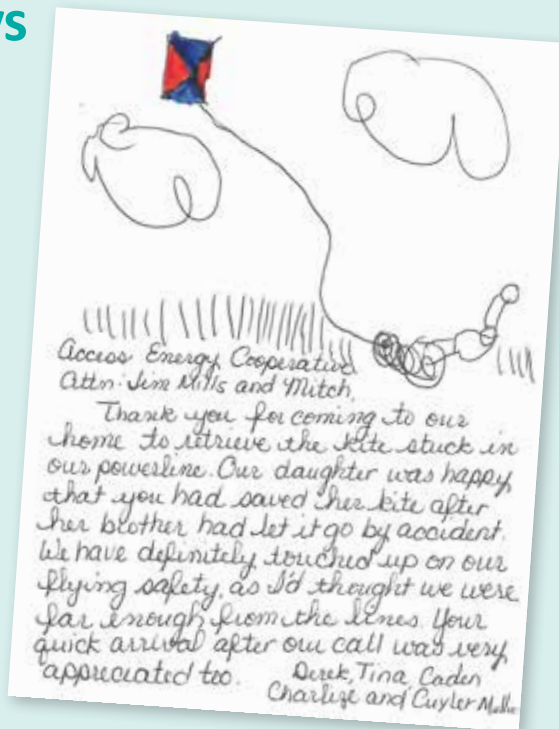 Access Energy Cooperative
Attn: Jim Mills and Mitch,
Thank you for coming to our
home to retrieve the kite stuck in
our powerline. Our daughter was happy
that you had saved her kite after
her brother had let it go by accident.
We have definitely touched up on our
flying safety, as I'd thought we were
far enough from the lines. Your
quick arrival after our call was very
appreciated too.
Derek, Tina, Caden
Charlize and Cuyler